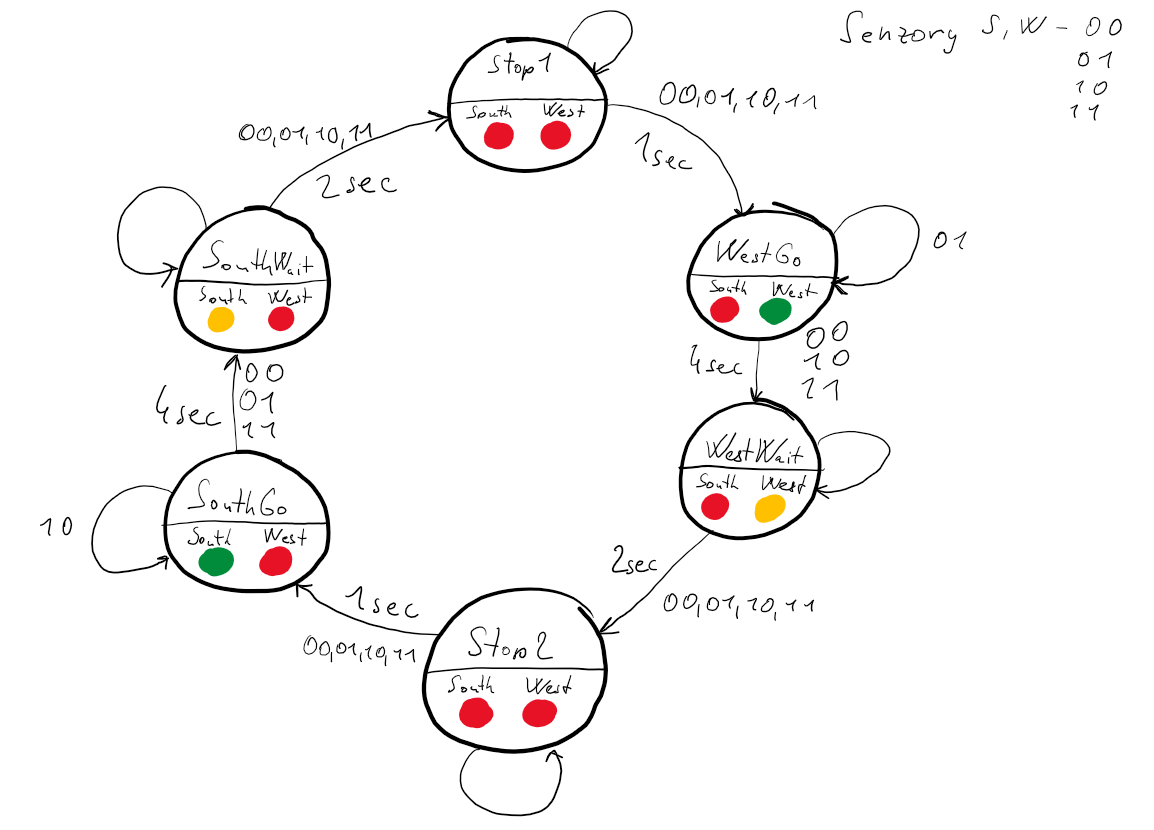 Senzory S,W - 00
01
10
11
Stop1
South West
00,01,10,11
1sec
WestGo
South West
01
00
10
11
4sec
WestWait
South West
2sec
00,01,10,11
Stop2
South West
1sec
00,01,10,11
SouthGo
South West
10
4sec
00
01
11
SouthWait
South West
00,01,10,11
2sec